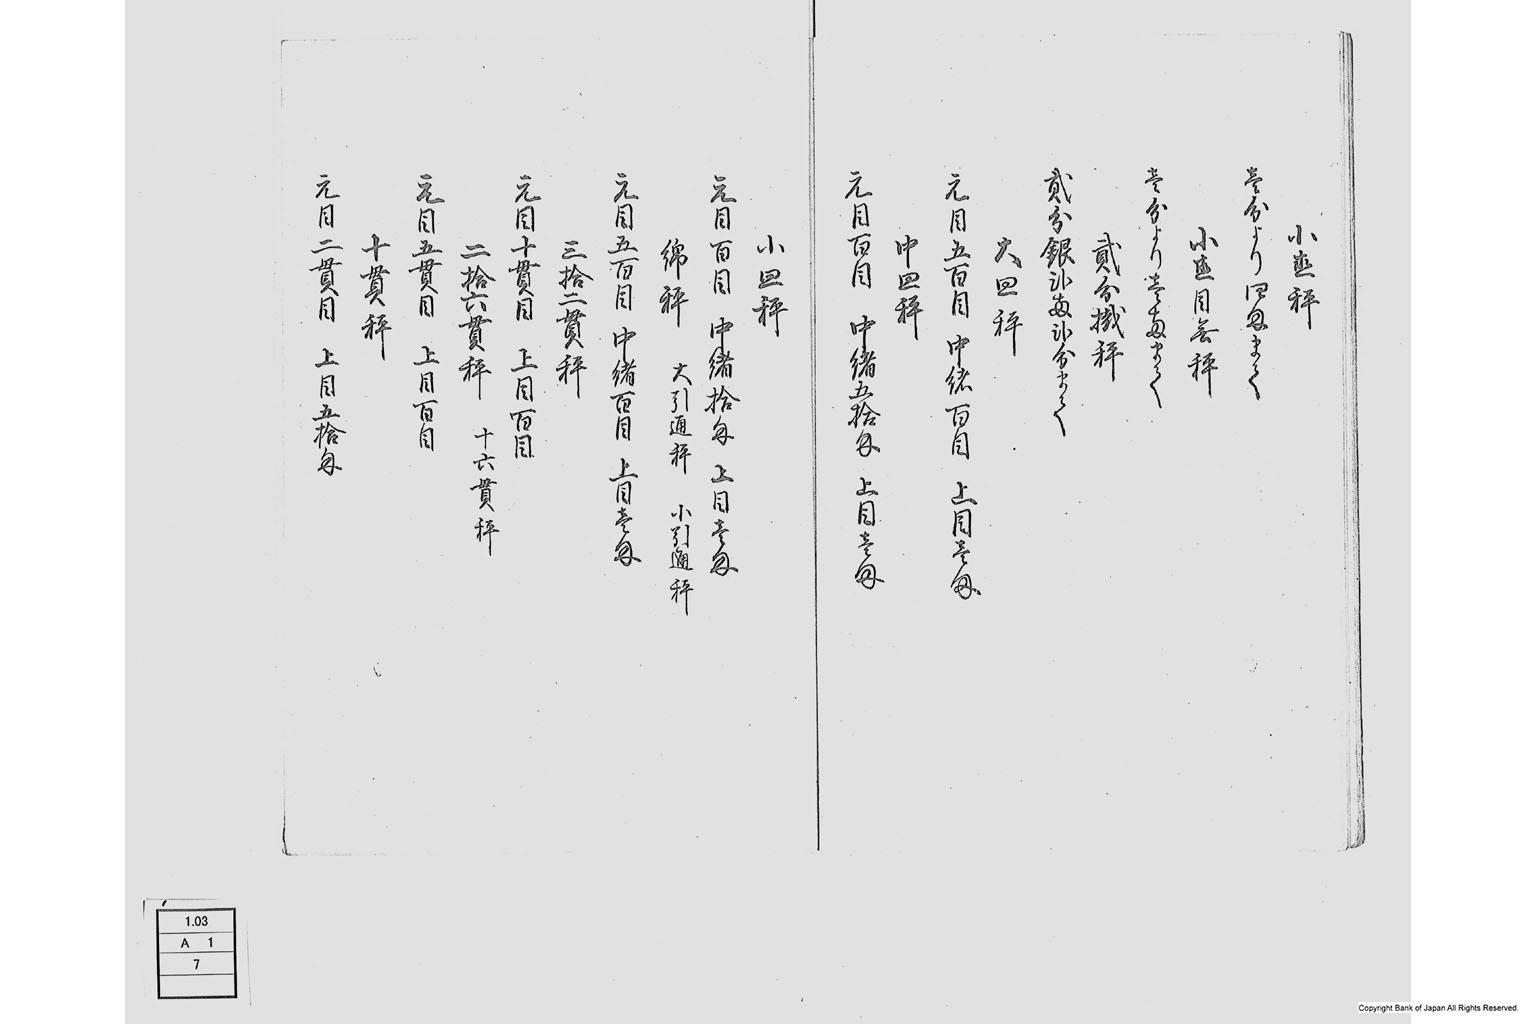 小匨秤
壱分より四匁まて
小匨目無秤
壱分より壱両まて
貮分掛秤
貮分銀弐両弐分まて
大皿秤
元目五百目 中緒百目 上目壱匁
中皿秤
元目百目 中緒五拾匁 上目壱匁
小皿秤
元目百目 中緒拾匁 上目壱匁
綿秤 大引通秤 小引通秤
元目五百目 中緒百目 上目壱匁
三拾二貫秤
元目十貫目 上目百目
二拾六貫秤 十六貫秤
元目五貫目 上目百目
十貫秤
元目二貫目 上目五拾匁
1.03
A 1
7
Copyright Bank of Japan All Rights Reserved.